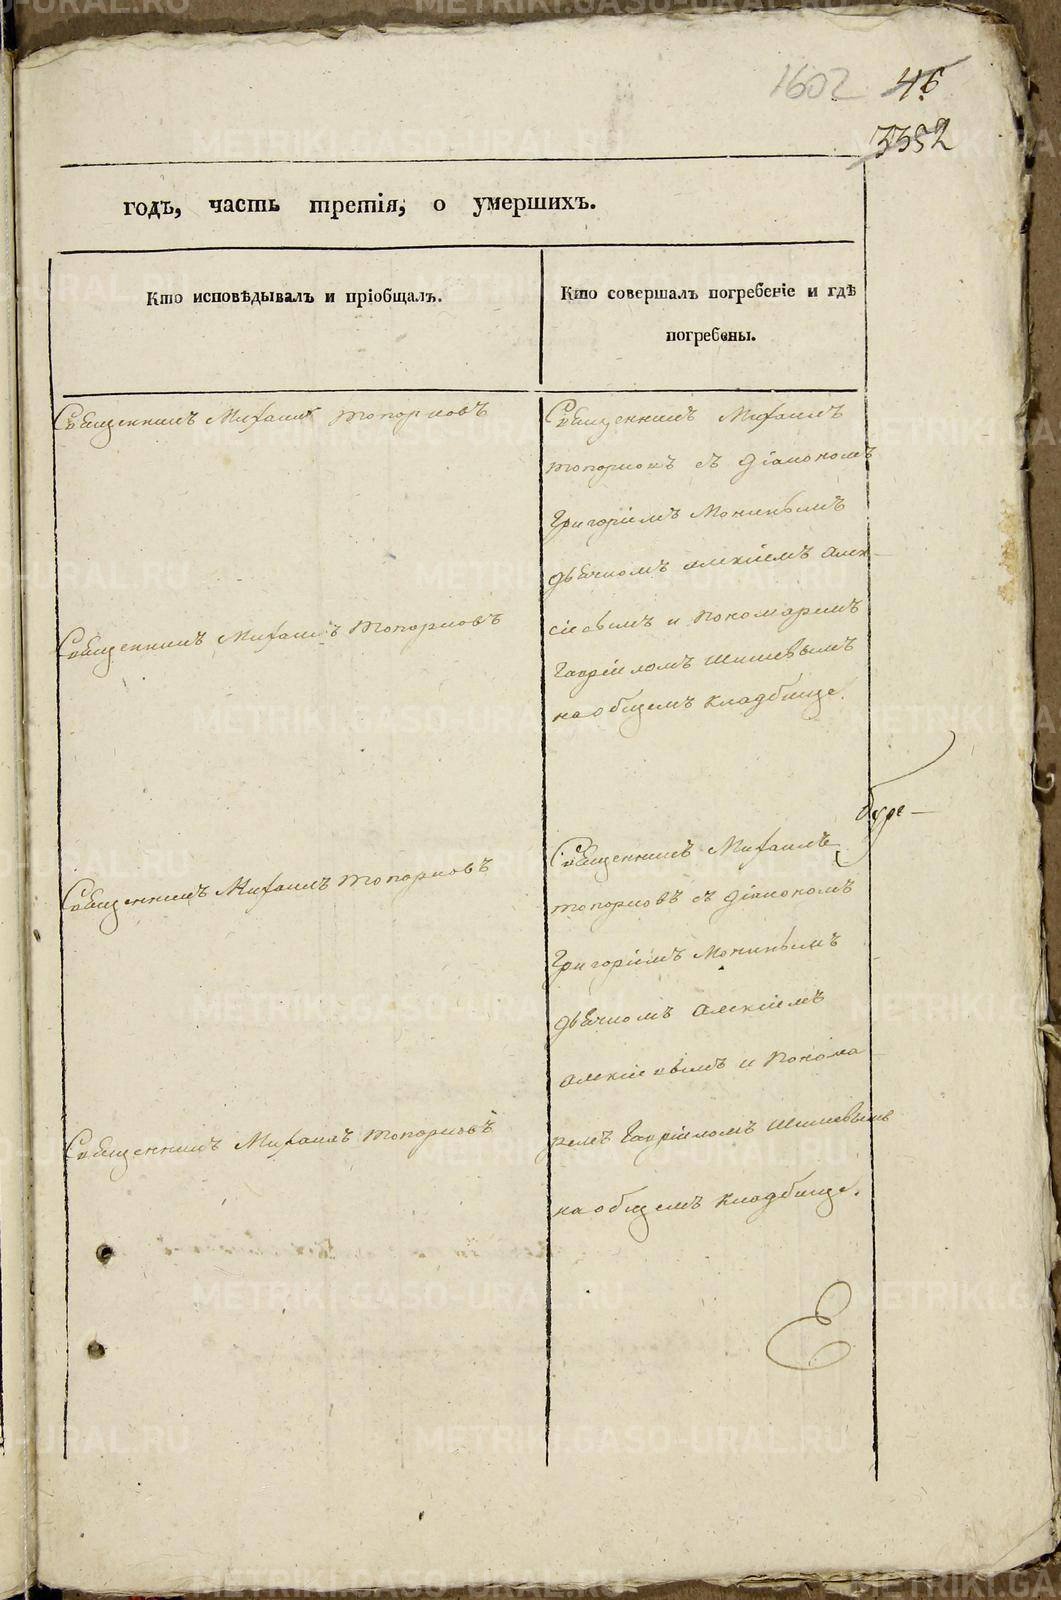 1602 46
3352
годъ, часть третія, о умершихъ.
Кто исповѣдывалъ и пріобщалъ.
Кто совершалъ погребеніе и гдѣ
погребены.
Священникъ Михаилъ Топорковъ
Священникъ Михаилъ
Топорковъ съ діакономъ
Григоріемъ
дьячкомъ Алексіемъ Алек-
сіевымъ и Пономаремъ
Гавріиломъ Шишевымъ
на общемъ кладбище.
Священникъ Михаилъ Топорковъ
Священникъ Михаилъ Топорковъ
Священникъ Михаилъ
Топорковъ съ діакономъ
Григоріемъ
дьячкомъ Алексіемъ
Алексіевымъ и Понома
ремъ Гавріиломъ Шишевымъ
на общемъ кладбище.
Священникъ Михаилъ Топорковъ
METRIKI.GASO-URAL.RU